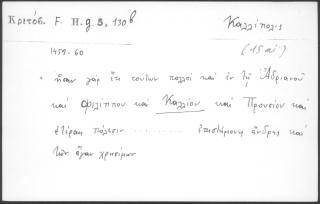 Κριτόβ. F. H. g. 3, 130b
Καλλίπολις
1459-60
(15 αἰ)
• ἦσαν γὰρ ἐκ τούτων πολλοὶ καὶ ἐν τῇ Ἀδριανοῦ
καὶ Φιλίππου καὶ Καλλίου καὶ Προυσίου καὶ
ἑτέραις πόλεσιν ........ ἐπιστήμονες ἄνδρες καὶ
τῶν ἄγαν χρησίμων